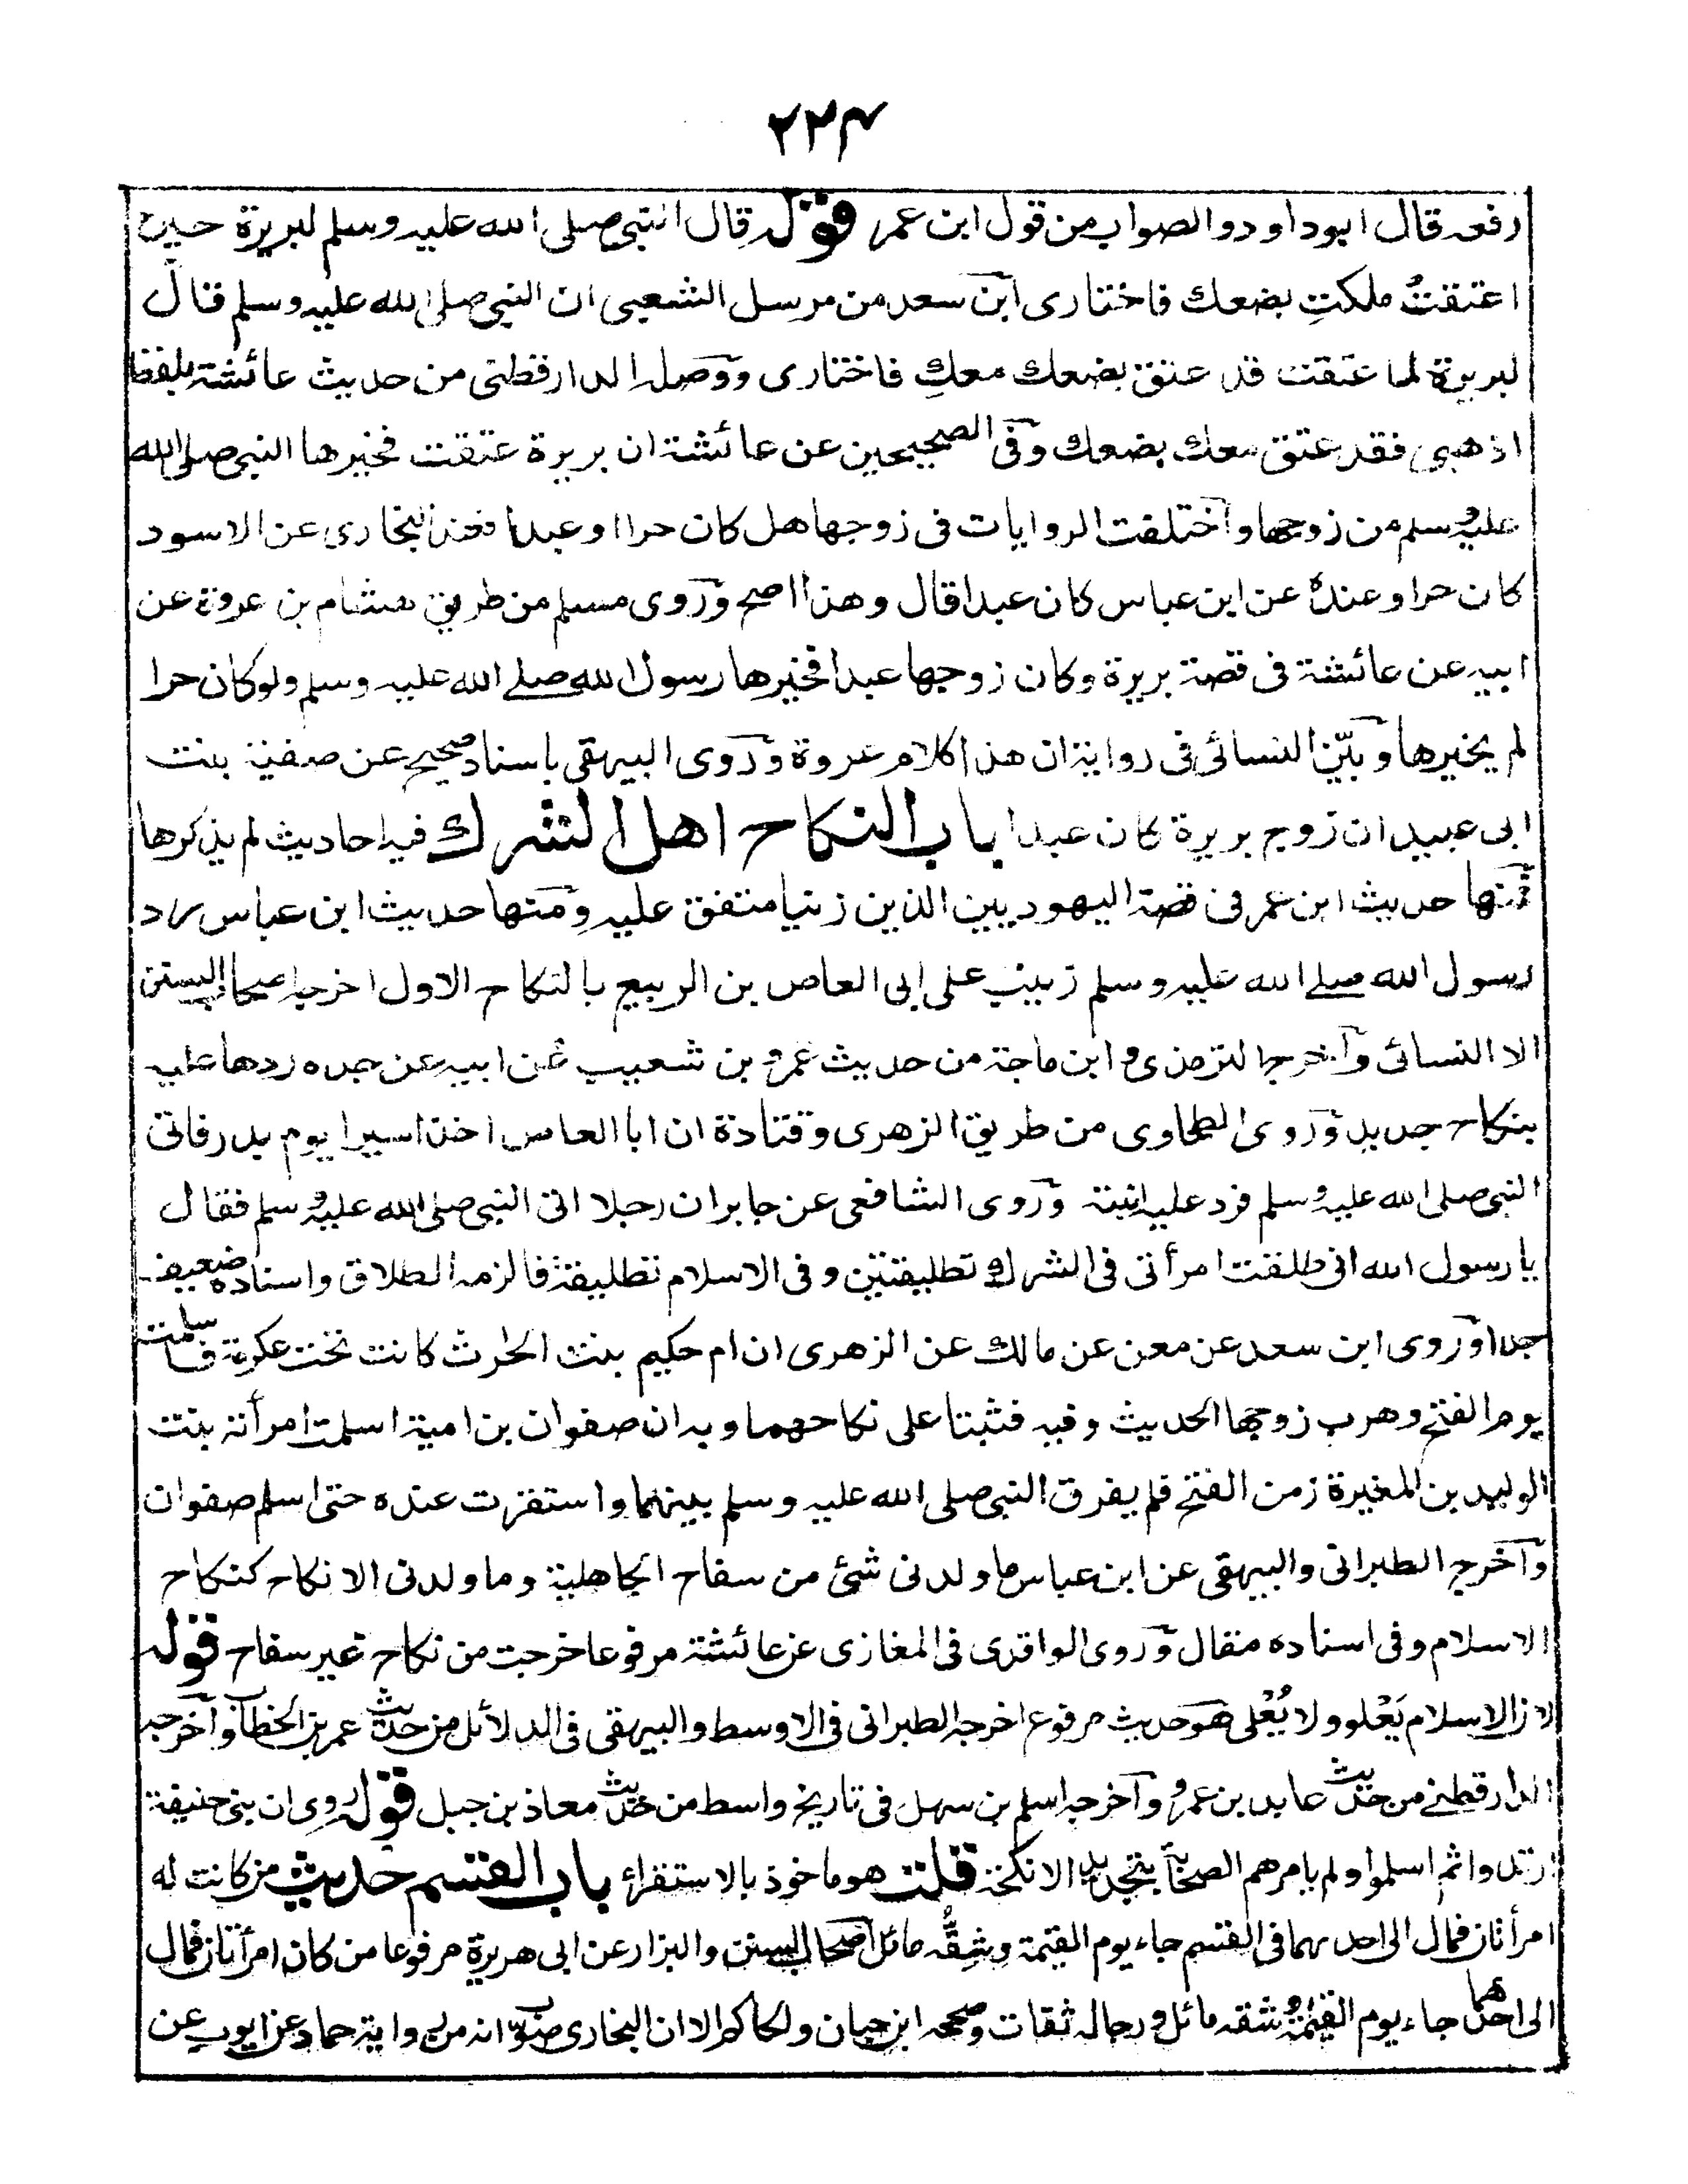 ٢٢٤
رفعه قال ابوداود والصواب من قول ابن عمر قوله قال النبي صلى الله عليه وسلم لبريرة حين
اعتقت ملكتِ بضعك فاختارى ابن سعد من مرسل الشعبى ان النبي صلى الله عليه وسلم قال
لبريرة لما عتقت قد عتق بضعك معكِ فاختارى ووصله الدارقطنى من حديث عائشة بلفظ
اذهبى فقد عتق معك بضعك وفى الصحيحين عن عائشة ان بريرة عتقت فخيرها النبي صلى الله
عليه وسلم من زوجها واختلفت الروايات فى زوجها هل كان حرا او عبدا فعند البخارى عن الاسود
كان حرا وعنده عن ابن عباس كان عبدا قال وهذا اصح وروى مسلم من طريق هشام بن عروة عن
ابيه عن عائشة فى قصة بريرة وكان زوجها عبدا فخيرها رسول الله صلى الله عليه وسلم ولو كان حرا
لم يخيرها وبيّن النسائى فى رواية ان هذا كلام عروة وروى البيهقى باسناد صحيح عن صفية بنت
ابى عبيد ان زوج بريرة كان عبدا باب النكاح اهل الشرك فيه احاديث لم يذكرها
فمنها حديث ابن عمر فى قصة اليهوديين الذين زنيا متفق عليه ومنها حديث ابن عباس رد
رسول الله صلى الله عليه وسلم زينب على ابى العاص بن الربيع بالنكاح الاول اخرجه اصحاب السنن
الا النسائى وآخرجه الترمذى و ابن ماجة من حديث عمرو بن شعيب عن ابيه عن جده ردها عليه
بنكاح جديد وروى الطحاوى من طريق الزهرى وقتادة ان ابا العاص اخذ اسيرا يوم بدر فاتى
النبي صلى الله عليه وسلم فرد عليه ابنته وروى الشافعى عن جابر ان رجلا اتى النبي صلى الله عليه وسلم فقال
يا رسول الله انى طلقت امرأتى فى الشرك تطليقتين وفى الاسلام تطليقة فالزمه الطلاق واسناده ضعيف
جدا وروى ابن سعد عن معن عن مالك عن الزهرى ان ام حكيم بنت الحٰرث كانت تحت عكرمة فاسلمت
يوم الفتح وهرب زوجها الحديث وفيه فثبتا على نكاحهما وبه ان صفوان بن امية اسلمت امرأته بنت
الوليد بن المغيرة زمن الفتح فلم يفرق النبي صلى الله عليه وسلم بينهما واستقرت عنده حتى اسلم صفوان
وآخرج الطبرانى والبيهقى عن ابن عباس ما ولدنى شئ من سفاح الجاهلية وما ولدنى الا نكاح كنكاح
الاسلام وفى اسناده مقال وروى الواقدى فى المغازى عن عائشة مرفوعا خرجت من نكاح غير سفاح قوله
لان الاسلام يَعْلو ولا يُعْلى هو حديث مرفوع اخرجه الطبرانى فى الاوسط والبيهقى فى الدلائل من حديث عمر بن الخطاب وآخرجه
الدارقطنى من حديث عايد بن عمرو وآخرجه اسلم بن سهل فى تاريخ واسط من حديث معاذ بن جبل قوله روى ان بنى حنيفة
ارتدوا ثم اسلموا ولم يامرهم الصحابة بتجديد الانكحة قلت هو ماخوذ بالاستقراء باب القسم حديث من كانت له
امرأتان فمال الى احدٰهما فى القسم جاء يوم القيٰمة وشِقُّه مائل اصحاب السنن والبزار عن ابى هريرة مرفوعا من كان له امرأتان فمال
الى احدٰهما جاء يوم القيٰمة وشقه مائل ورجاله ثقات وصححه ابن حبان والحاكم الا ان البخارى صوّب انه من رواية حماد عن ايوب عن